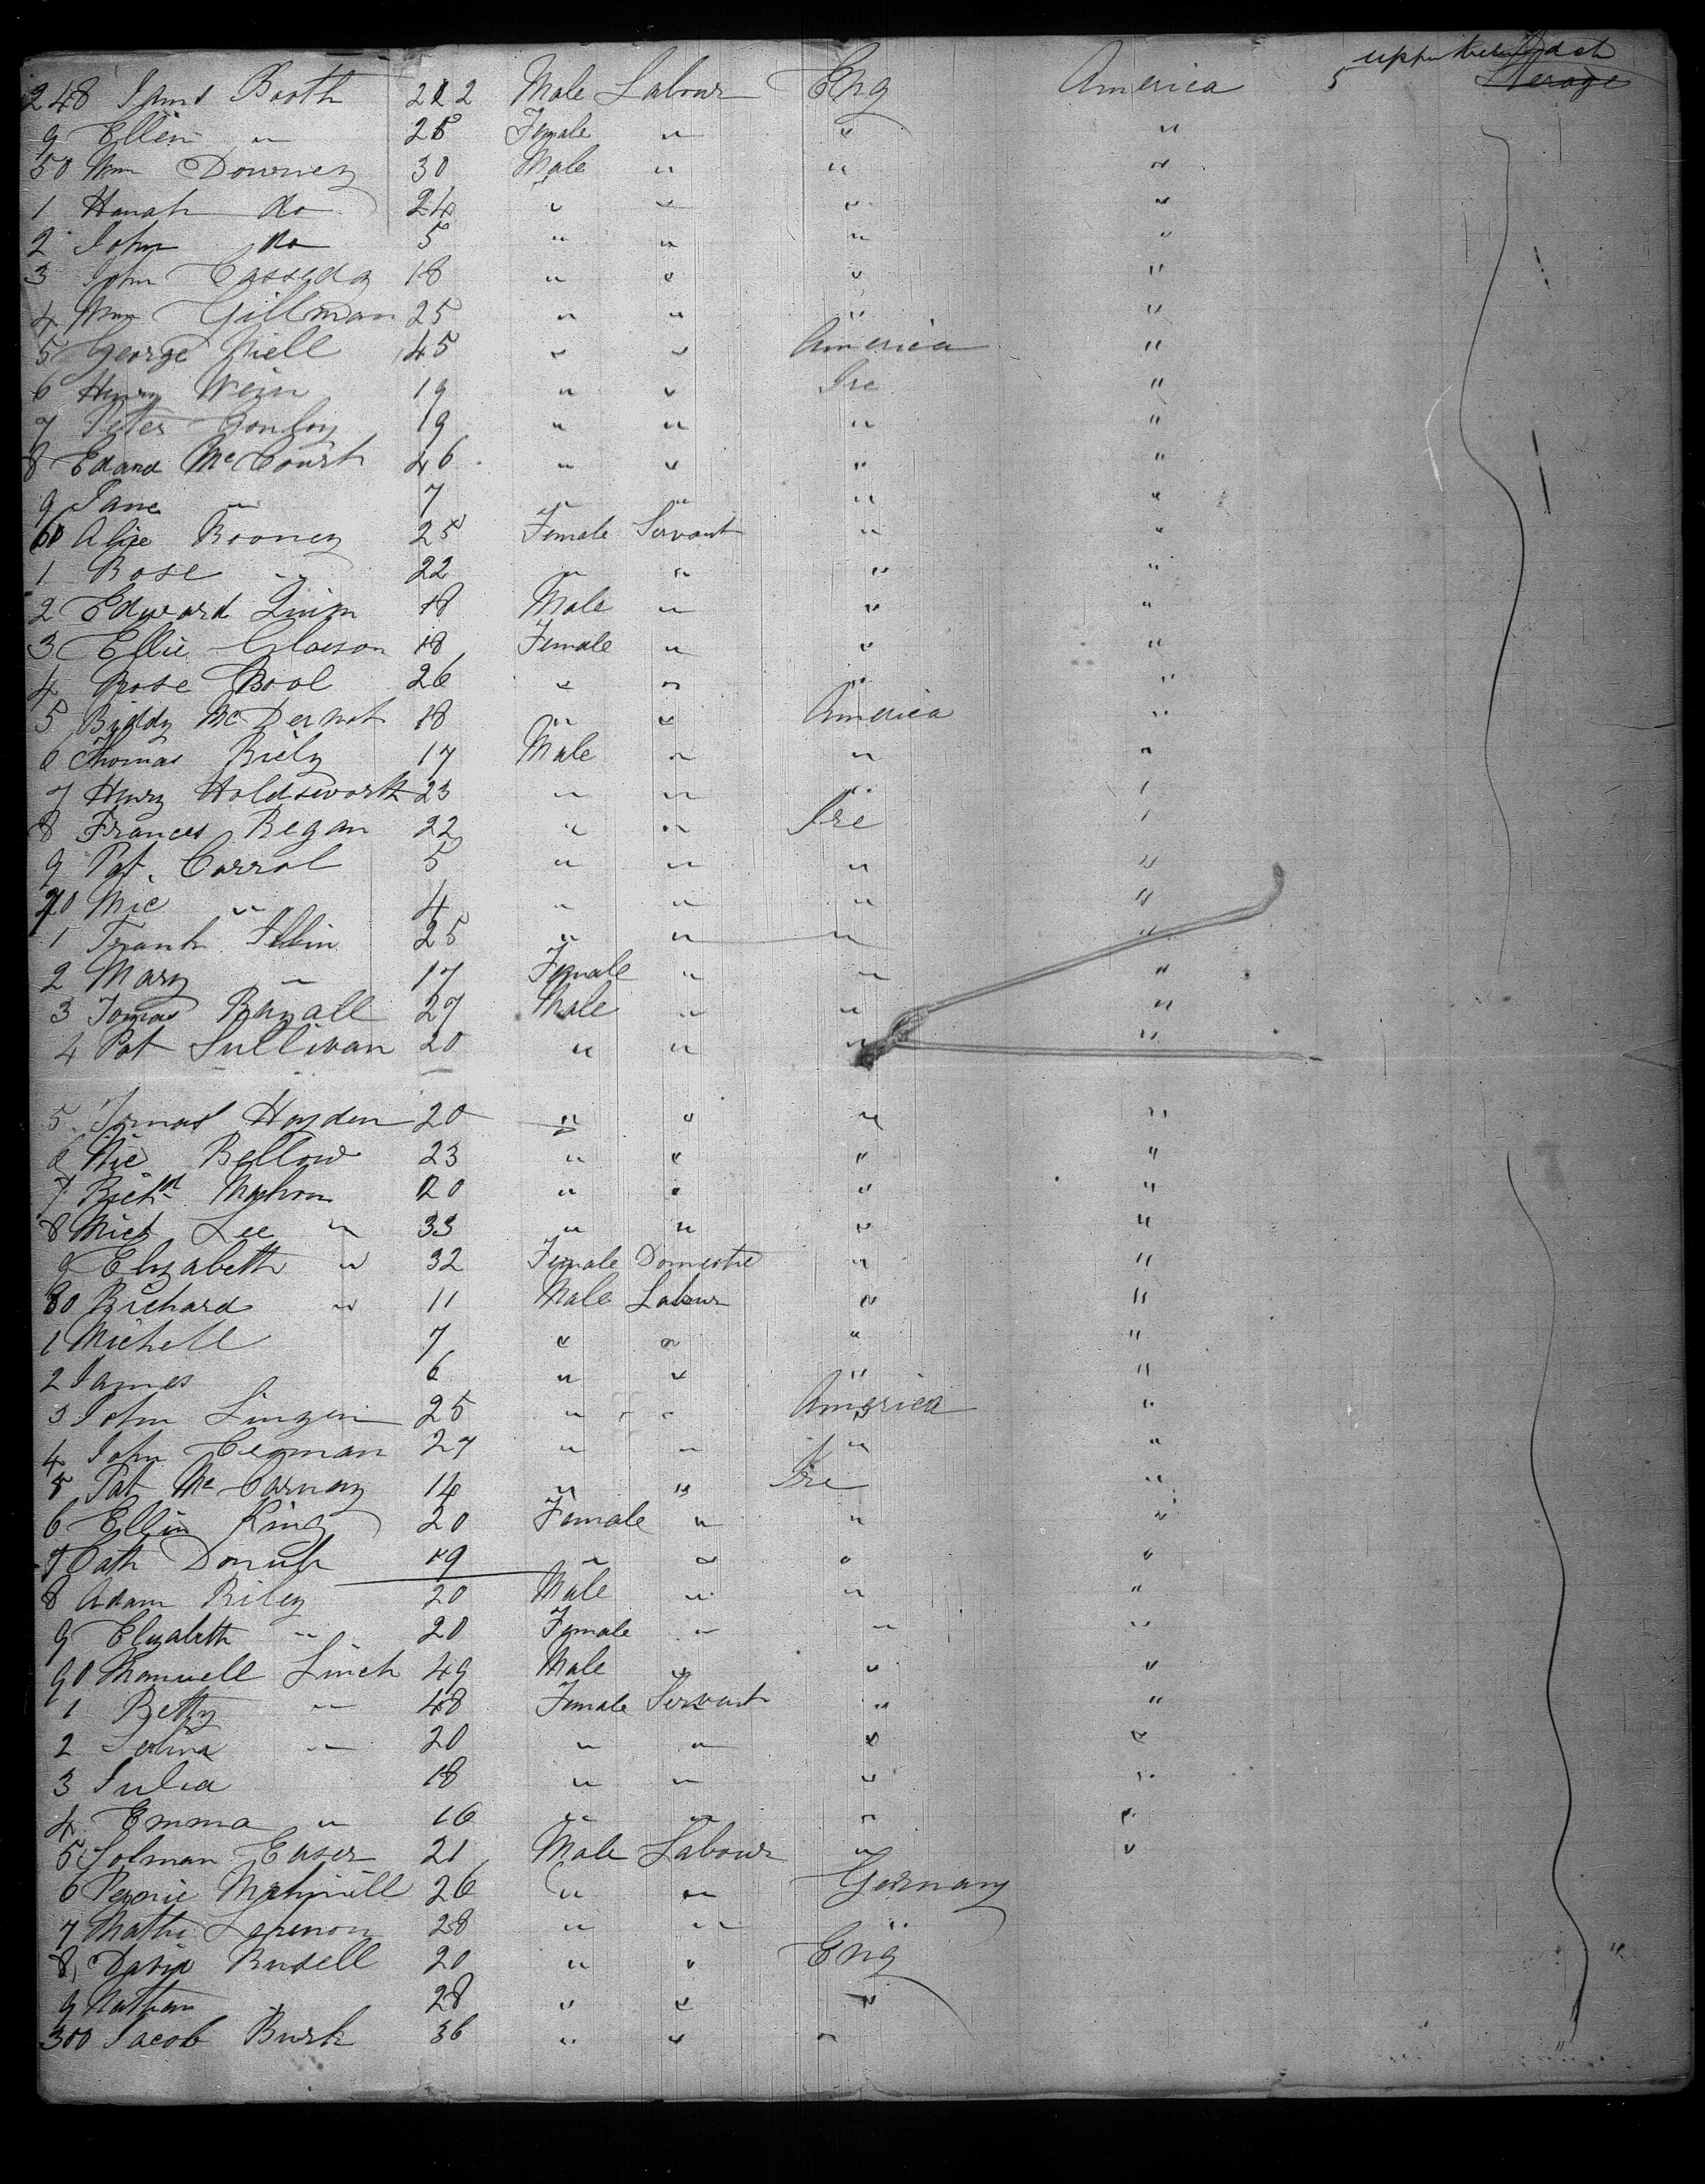 upper between deck
248 James Booth 22 Male Labour Eng America 5 Sterage
9 Ellen " 25 Female " " "
50 Wm Downey 30 Male " " "
1 Hanah do 24 " " " "
2 John do 5 " " " "
3 John Casseday 18 " " " "
4 Wm Gillman 25 " " " "
5 George Niell 45 " " America "
6 Henry Wein 19 " " Ire "
7 Peter Conloy 19 " " " "
8 Edard McCourt 46 " " " "
9 Jane " 7 " " " "
60 Alice Rooney 25 Female Servant " "
1 Rose " 22 " " " "
2 Edward Quinn 18 Male " " "
3 Ellie Gleeson 18 Female " " "
4 Rose Bool 26 " " " "
5 Biddy McDermot 18 " " America "
6 Thomas Riely 17 Male " " "
7 Henry Holdswork 23 " " " "
8 Frances Regan 22 " " Ire "
9 Pat. Carrol 5 " " " "
70 Mic " 4 " " " "
1 Frank 25 " " " "
2 Mary " 17 Female " " "
3 Tomas 27 Male " " "
4 Pat Sullivan 20 " " " "
5 Tomas Hayden 20 " " " "
6 Mic Bellow 23 " " " "
7 Richd Mahon 20 " " " "
8 Mich Lee " 33 " " " "
9 Elizabeth " 32 Female Domestic " "
80 Richard " 11 Male Labour " "
1 Michell 7 " " " "
2 James 6 " " " "
3 John 25 " " America "
4 John Cegman 27 " " " "
5 Pat McCarnay 14 " " Ire "
6 Ellin King 20 Female " " "
7 Cath 19 " " " "
8 Adam Riley 20 Male " " "
9 Elizabeth " 20 Female " " "
90 Manuell Linch 49 Male " " "
1 Betty " 48 Female Servant " "
2 Selina " 20 " " " "
3 Julia 18 " " " "
4 Emma " 16 " " " "
5 Solman Easer 21 Male Labour " "
6 26 " " Germany
7 Mathi 28 " " "
8 David Rusell 20 " " Eng "
9 Nathan " 28 " " "
300 Jacob Burk 36 " " " "